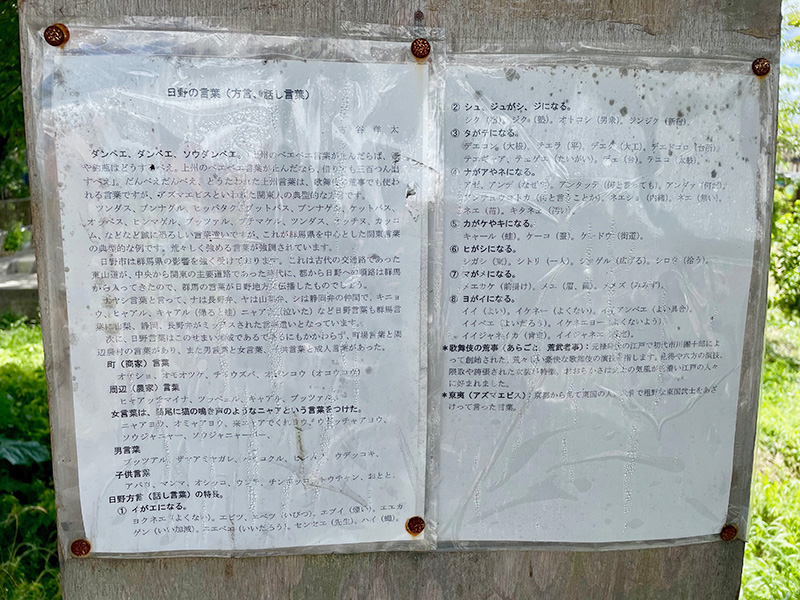 日野の言葉（方言、話し言葉）
谷 太
ダンベエ、ダンベエ、ソウダンベエ。上州のベエベエ言葉が止んだらば、
や釣瓶はどうすべえ。上州のベエベエ言葉が止んだなら、借りても三百つん出
すべえ」。だんべえだんべえ、とうたわれた上州言葉は、歌舞伎の荒事でも使わ
れる言葉ですが、アズマエビスといわれた関東人の典型的な方言です。
ノメス、ブンナゲル、ヒッパタク、ブットバス、ブンナグル、ケットバス、
オッペス、ヒンマゲル、ブッツアル、ブチマケル、ツンダス、マッチス、カッコ
ム、などなど誠に恐ろしい言葉遣いですが、これが群馬県を中心とした関東言葉
の典型的な例です。荒々しく強める言葉が強調されています。
日野市は群馬県の影響を強く受けております。これは古代の交通路であった
東山道が、中央から関東の主要道路であった時代に、都から日野への道路は群馬
から入ってきたので、群馬の言葉が日野地方に伝播したものでしょう。
ナヤシ言葉と言って、ナは長野弁、ヤは山梨弁、シは静岡弁の仲間で、キニョ
ウ、ヒャアル、キャアル（帰ると蛙）ニャアタ（泣いた）など日野言葉も群馬言
葉に山梨、静岡、長野弁がミックスされた言葉遣いとなっています。
次に、日野言葉はこのせまい地域であるにもかかわらず、町場言葉と周
辺農村の言葉があり、また男言葉と女言葉、子供言葉と成人言葉があった。
町（商家）言葉
オイショ、オモオツケ、チョウズバ、オコンコウ（オコウコウ）
周辺（農家）言葉
ヒャアッチマイナ、ツッペエル、キャアル、ブッツアル、
女言葉は、語尾に猫の鳴き声のようなニャアという言葉をつけた。
ニャアヨウ、オミャアヨウ、来ニャアでくれヨウ、ウッチャアヨウ、
ソウジャニャー、ソウジャニャーバー、
男言葉
ブッツアル、ザマアミヤガレ、クル、ウデッコキ、
子供言葉
アバヨ、マンマ、オシッコ、ウンチ、チンポッコ、トウチャン、おとと、
日野方言（話し言葉）の特長。
① イがエになる。
ヨクネエ（よくない）、エビツ、エベツ（いびつ）、エブイ（煙い）、エエカ
ゲン（いい加減）、ニエベエ（いいだろう）、センセエ（先生）、ハイ（蠅）
② シュ、ジュがシ、ジになる。
シク（宿）、ジク（塾）、オトコシ（男衆）、シンジク（新宿）
③ タがデになる。
デエコン（大根）、テエラ（平）、デエク（大工）、デエドコロ（台所）
テエボッア、テエゲエ（たいがい）、デエ（台）、テエコ（太鼓）、
④ ナがアやネになる。
アゼ、アンデ（なぜ？）、アンタッテ（何と言っても）、アンダァ（何だ）
アンテュウコトカ（何と言うことか）、ネエショ（内緒）、ネエ（無い）、
ネエ（苗）、キタネエ（汚い）、
⑤ カがケやキになる。
キャール（蛙）、ケーコ（蚕）、ケードウ（街道）、
⑥ ヒがシになる。
シガシ（東）、シトリ（一人）、シロゲル（広げる）、シロウ（拾う）
⑦ マがメになる。
メエカケ（前掛け）、メエ（眉、繭）、メメズ（みみず）、
⑧ ヨがイになる。
イイ（よい）、イケネー（よくない）、イイアンベエ（よい具合）、
イイベエ（よいだろう）、イケネエヨー（よくないよう）、
イイジャネイカ（肯定）、イイジャネエカー（否定）
＊歌舞伎の荒事（あらごと、荒武者事）：元禄時代の江戸で初代市川團十郎によ
って創始された、荒々しい豪快な歌舞伎の演技を指します。見得や六方の演技、
隈取や誇張された衣装が特徴。おおらかさは気風が荒い江戸の人々
に好まれました。
＊東夷（アズマエビス）：京都から見て東国の人、で粗野な東国武士をあざ
けって言った言葉。